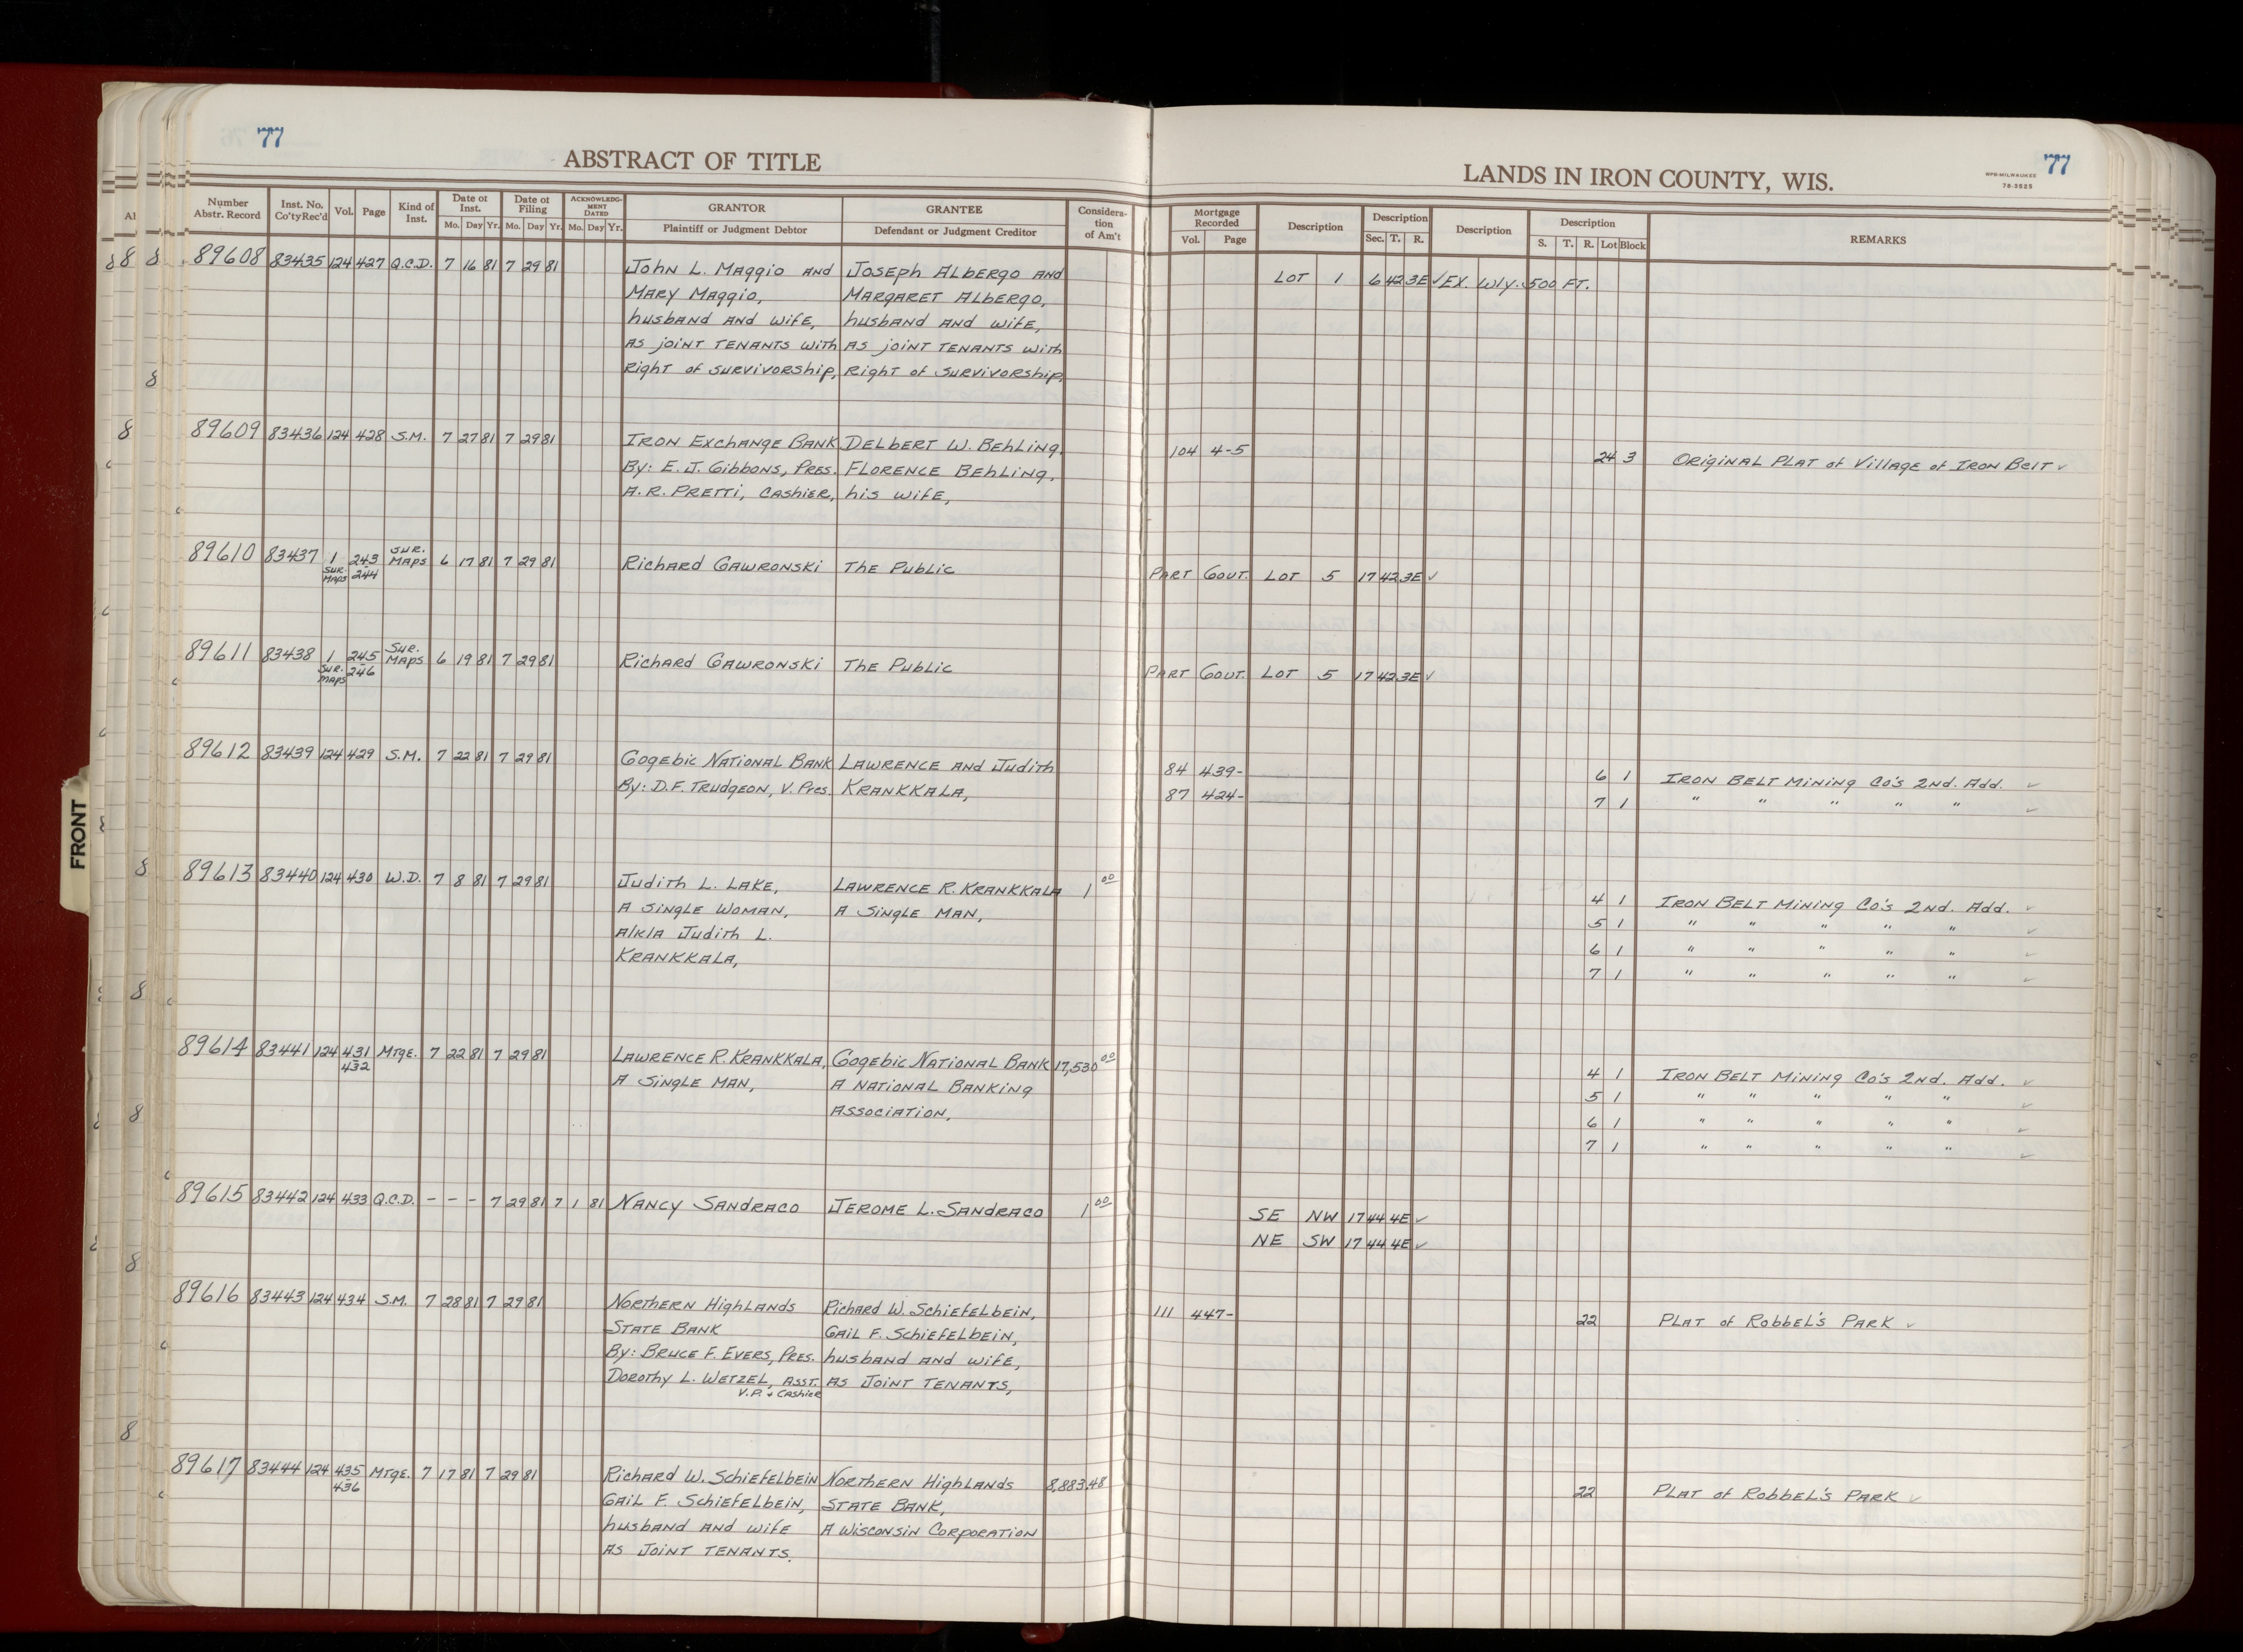 77
ABSTRACT OF TITLE
LANDS IN IRON COUNTY, WIS.
WPB-MILWAUKEE
78-3525
77
Number Abstr. Record
Inst. No. Co'tyRec'd
Vol.
Page
Kind of Inst.
Date of Inst.
Mo. Day Yr.
Date of Filing
Mo. Day Yr.
ACKNOWLEDG-MENT DATED
Mo. Day Yr.
GRANTOR
Plaintiff or Judgment Debtor
GRANTEE
Defendant or Judgment Creditor
Considera-tion of Am't
Mortgage Recorded
Vol. Page
Description
Description
Sec. T. R.
Description
Description
S. T. R. Lot Block
REMARKS
89608 83435 124 427 Q.C.D. 7 16 81 7 29 81 John L. Maggio and Joseph Albergo and LOT 1 6 42 3E ✓ EX. Wly. 500 FT.
Mary Maggio, Margaret Albergo,
husband and wife, husband and wife,
as joint tenants with as joint tenants with
Right of survivorship, Right of survivorship,
89609 83436 124 428 S.M. 7 27 81 7 29 81 Iron Exchange Bank Delbert W. Behling. 104 4-5 24 3 Original Plat of Village of Iron Belt ✓
By: E.J. Gibbons, Pres. Florence Behling,
A.R. Pretti, Cashier, his wife,
89610 83437 1 Sur. Maps 243-244 Sur. Maps 6 17 81 7 29 81 Richard Gawronski The Public Part Gout. Lot 5 17 42 3E ✓
89611 83438 1 Sur. Maps 245-246 Sur. Maps 6 19 81 7 29 81 Richard Gawronski The Public Part Gout. Lot 5 17 42 3E ✓
89612 83439 124 429 S.M. 7 22 81 7 29 81 Gogebic National Bank Lawrence and Judith 84 439- 6 1 Iron Belt Mining Co's 2nd. Add. ✓
By: D.F. Trudgeon, V. Pres. Krankkala, 87 424- 7 1 " " " " " ✓
89613 83440 124 430 W.D. 7 8 81 7 29 81 Judith L. Lake, Lawrence R. Krankkala 1 00 4 1 Iron Belt Mining Co's 2nd. Add. ✓
a single woman, a single man, 5 1 " " " " " ✓
a/k/a Judith L. 6 1 " " " " " ✓
Krankkala, 7 1 " " " " " ✓
89614 83441 124 431-432 Mtge. 7 22 81 7 29 81 Lawrence R. Krankkala, Gogebic National Bank 17,530 00 4 1 Iron Belt Mining Co's 2nd. Add. ✓
a single man, a National Banking 5 1 " " " " " ✓
Association, 6 1 " " " " " ✓
7 1 " " " " " ✓
89615 83442 124 433 Q.C.D. - - - 7 29 81 7 1 81 Nancy Sandraco Jerome L. Sandraco 1 00 SE NW 17 44 4E ✓
NE SW 17 44 4E ✓
89616 83443 124 434 S.M. 7 28 81 7 29 81 Northern Highlands Richard W. Schiefelbein, 111 447- 22 Plat of Robbel's Park ✓
State Bank Gail F. Schiefelbein,
By: Bruce F. Evers, Pres. husband and wife,
Dorothy L. Wetzel, Asst. as joint tenants,
V.P. & Cashier
89617 83444 124 435-436 Mtge. 7 17 81 7 29 81 Richard W. Schiefelbein Northern Highlands 8,883.48 22 Plat of Robbel's Park ✓
Gail F. Schiefelbein, State Bank,
husband and wife a Wisconsin Corporation
as joint tenants.
FRONT